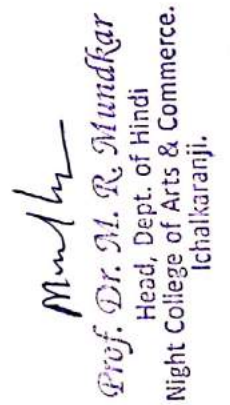 Prof. Dr. M. R. Mundkar
Head, Dept. of Hindi
Night College of Arts & Commerce.
Ichalkaranji.